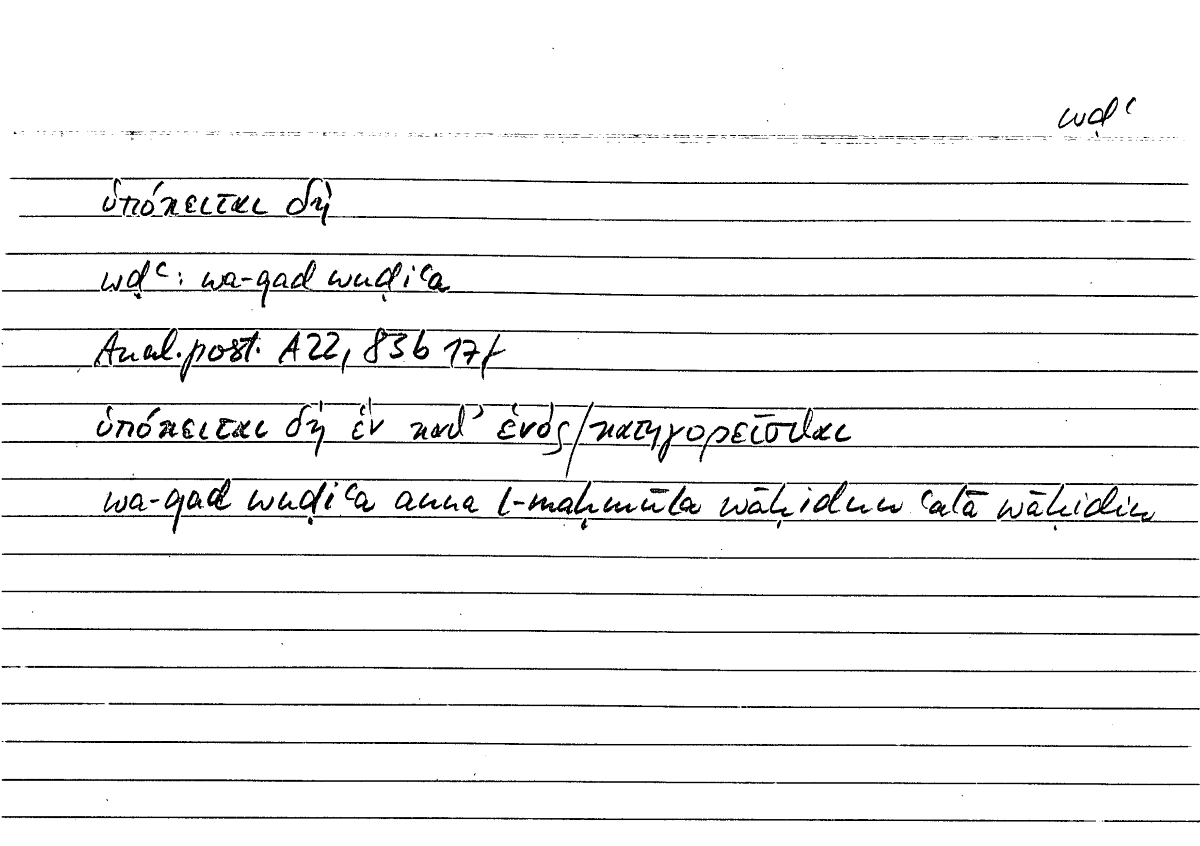 wḍʿ
ὑπόκειται δή
wḍʿ: wa-qad wuḍiʿa
Anal. post. A22, 83b 17f
ὑπόκειται δή ἓν καθ' ἑνός/κατηγορεῖσθαι
wa-qad wuḍiʿa anna l-maḥmūla wāḥidun ʿalā wāḥidin